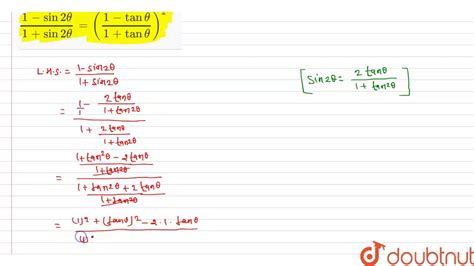 (1 - sin 2θ)/(1 + sin 2θ) = ((1 - tan θ)/(1 + tan θ))
L.H.S. = (1 - sin2θ)/(1 + sin2θ)
[ Sin2θ = 2tanθ/(1 + tan²θ) ]
= (1/1 - 2tanθ/(1 + tan2θ))/(1 + 2tanθ/(1 + tan2θ))
= ((1 + tan²θ - 2tanθ)/(1 + tan2θ))/((1 + tan2θ + 2tanθ)/(1 + tan2θ))
= ((1)² + (tanθ)² - 2.1.tanθ)/(1)
doubtnut